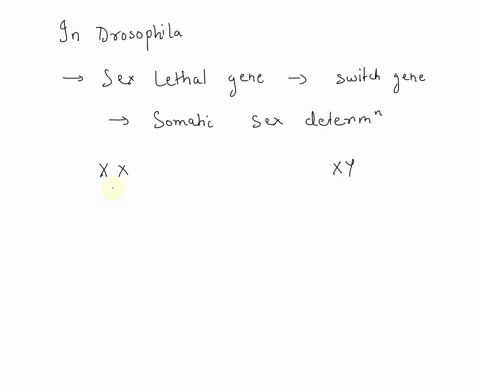 In Drosophila
→ Sex Lethal gene → switch gene
→ Somatic sex determⁿ
XX XY